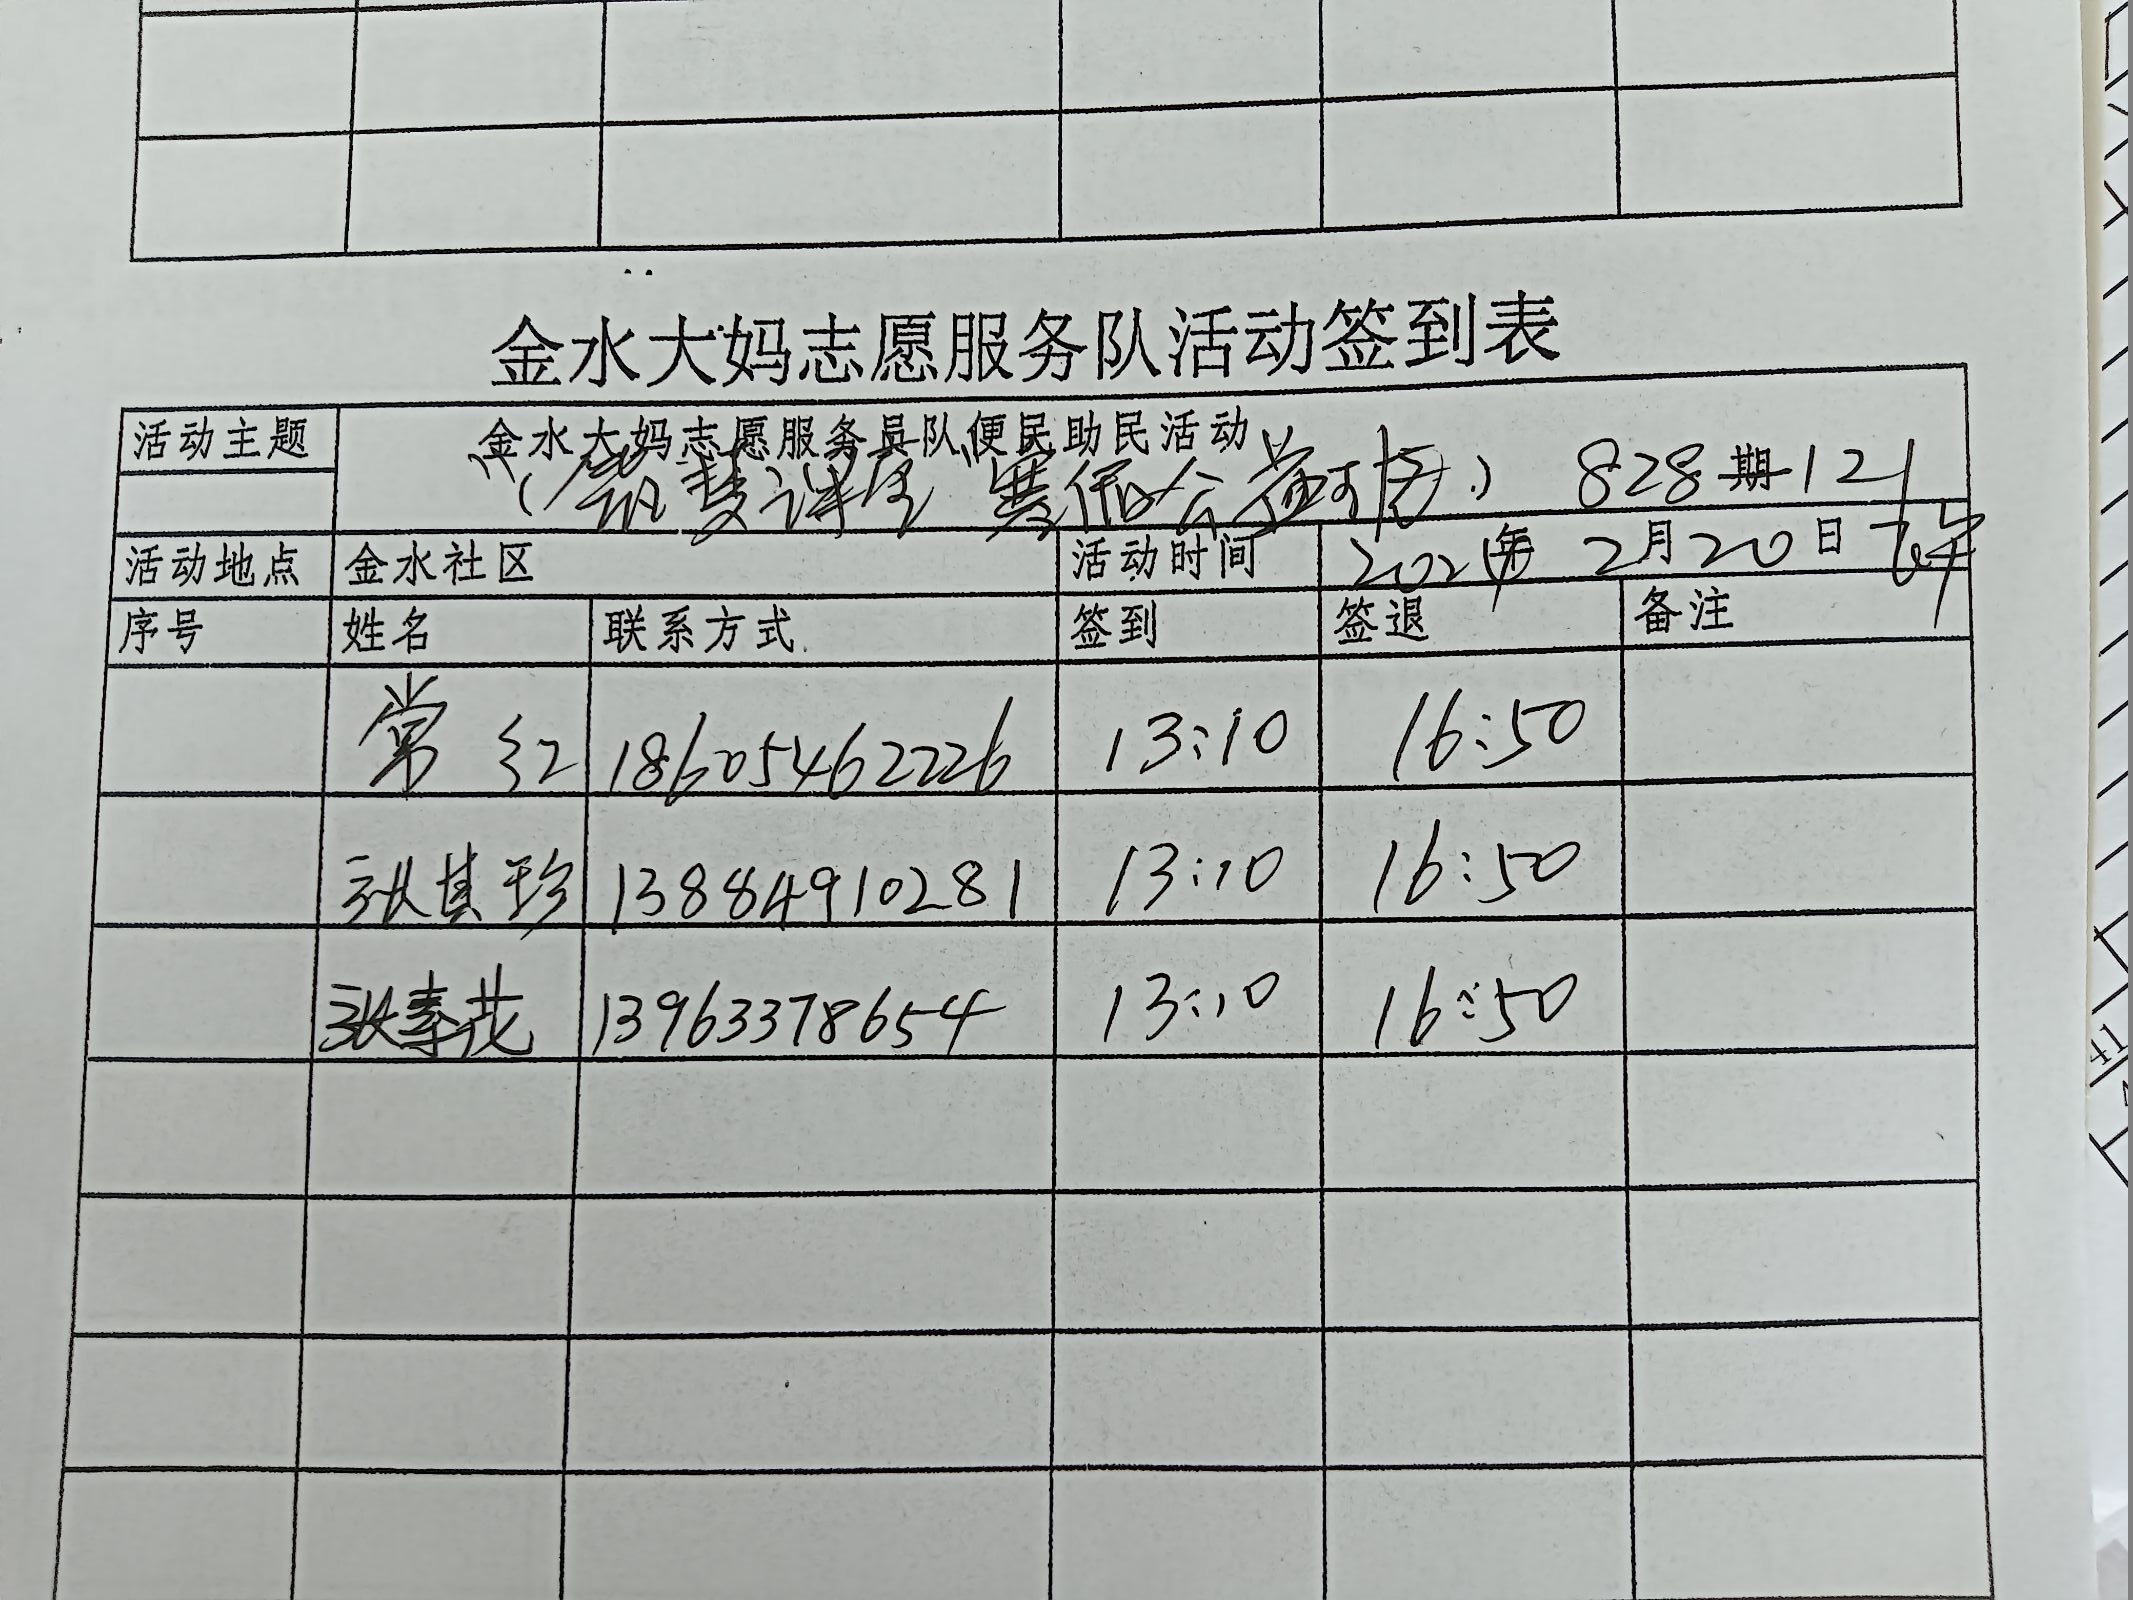 金水大妈志愿服务队活动签到表
活动主题 金水大妈志愿服务员队便民助民活动
828期121
活动地点 金水社区 活动时间 2021年 2月20日 下午
序号 姓名 联系方式 签到 签退 备注
常红 18605462226 13:10 16:50
张其珍 13884910281 13:10 16:50
张秦花 13963378654 13:10 16:50